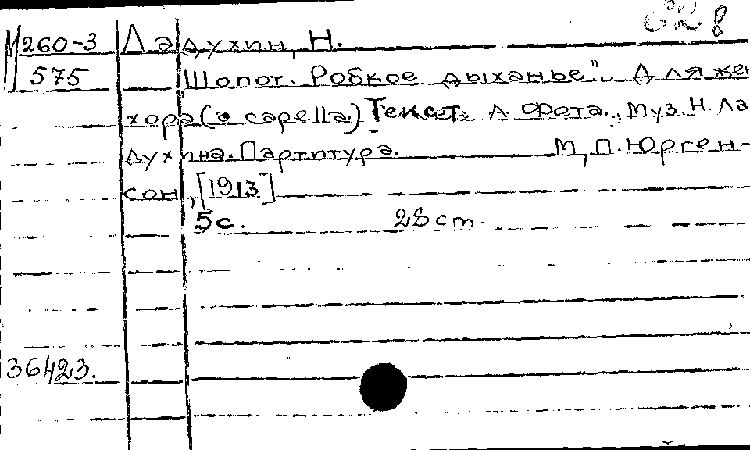 М260-3 Ладухин, Н.
575 Шопот. Робкое дыханье". Для жен
хора (a capella.) Текст А. Фета., Муз. Н. Ла
духина. Партитура. М, П. Юрген-
сон, [1913]
5 с. 28 cm.
36423.